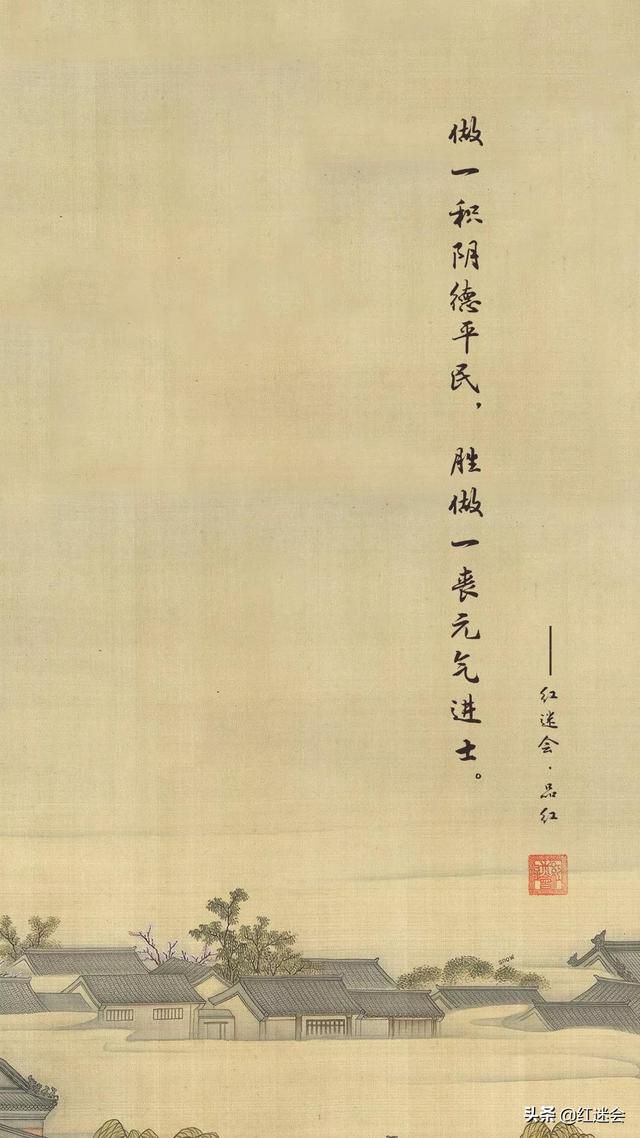 做一积阴德平民，胜做一丧元气进士。
——红迷会·品红
snow
头条 @红迷会